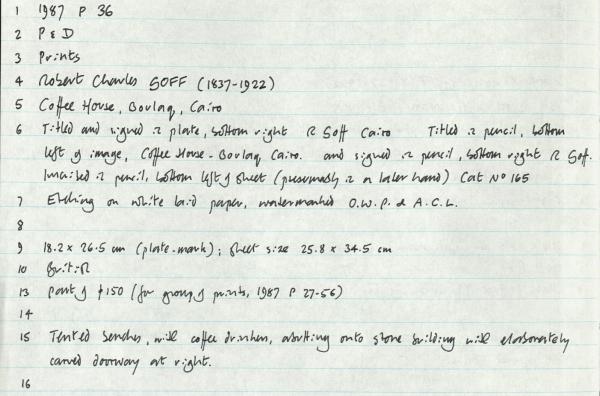 1 1987 P 36
2 P & D
3 Prints
4 Robert Charles GOFF (1837-1922)
5 Coffee House, Boulaq, Cairo
6 Titled and signed in plate, bottom right R Goff Cairo Titled in pencil, bottom
left of image, Coffee House - Boulaq, Cairo. and signed in pencil, bottom right R Goff.
Inscribed in pencil, bottom left of sheet (presumably in a later hand) Cat No 165
7 Etching on white laid paper, watermarked O.W.P. & A.C.L.
8
9 18.2 x 26.5 cm (plate-mark); sheet size 25.8 x 34.5 cm
10 British
13 part of £150 (for group of prints, 1987 P 27-56)
14
15 Tented benches, with coffee drinkers, abutting onto stone building with elaborately
carved doorway at right.
16